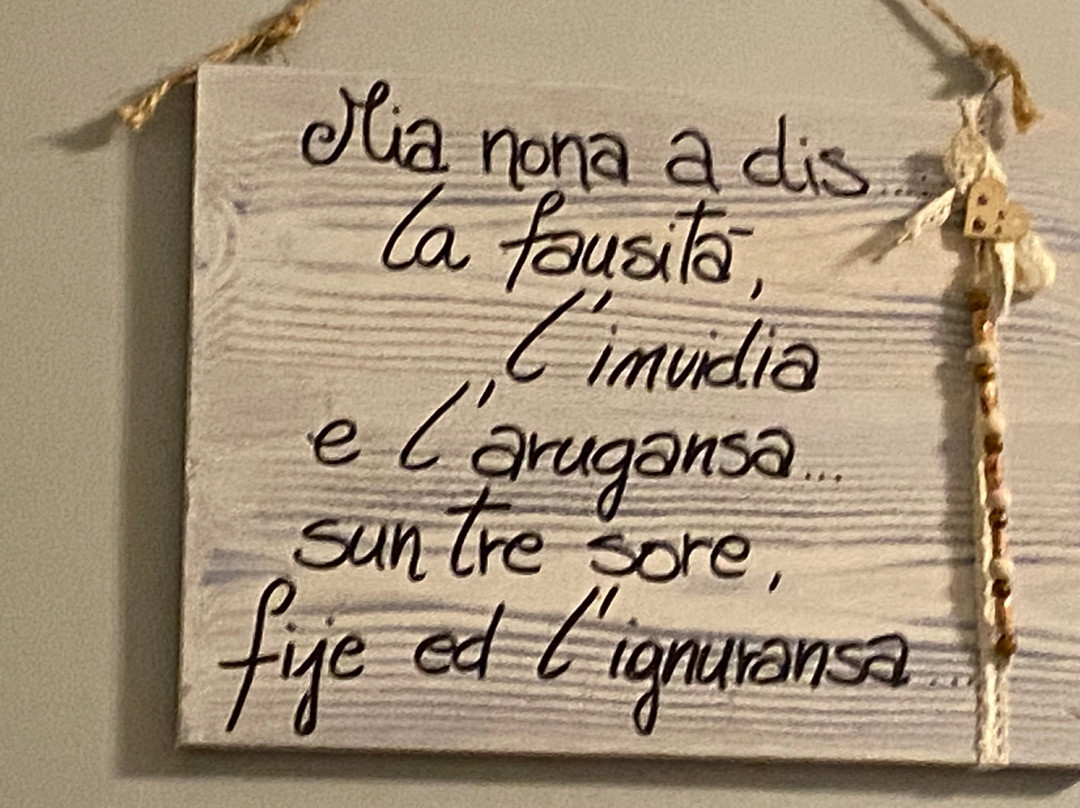 Mia nona a dis.....
la fausità,
l'invidia
e l'arugansa...
sun tre sore,
fije ed l'ignuransa...